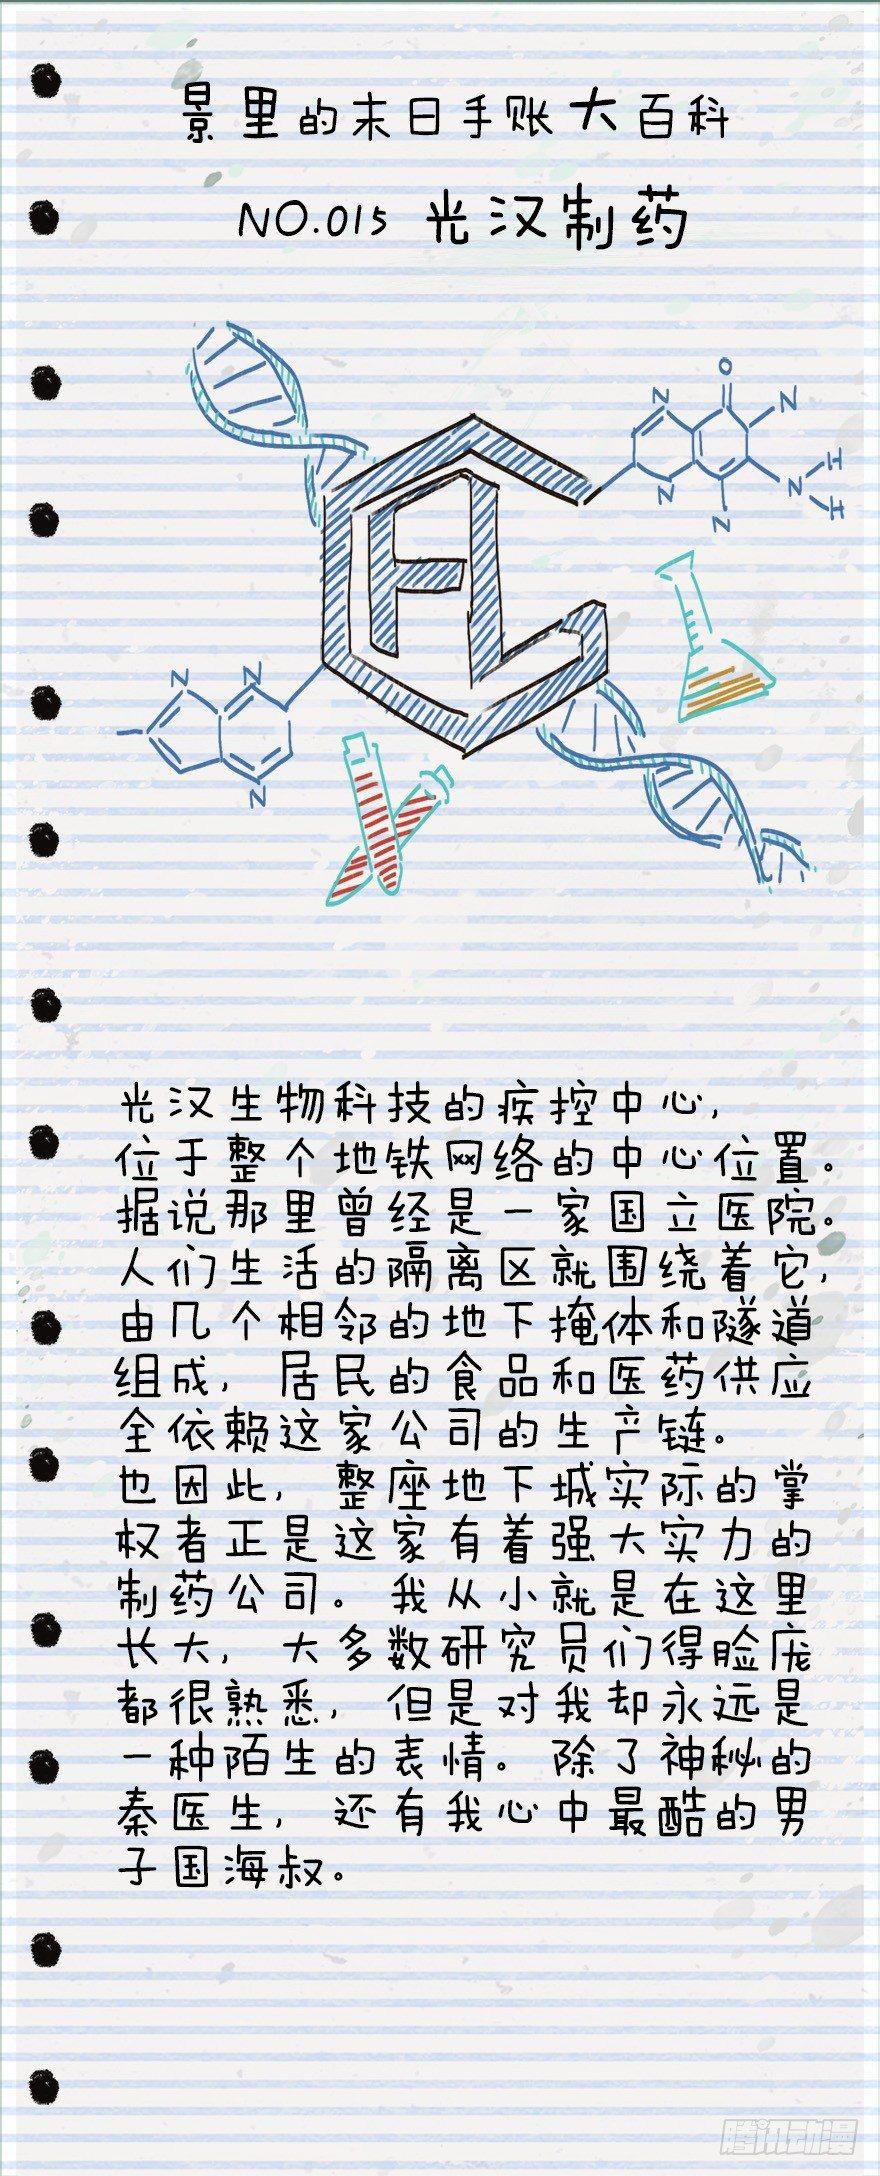 景里的末日手账大百科
NO.015 光汉制药
O
N
N
N
N
H
N
H
N
FL
N
N
N
光汉生物科技的疾控中心，
位于整个地铁网络的中心位置。
据说那里曾经是一家国立医院。
人们生活的隔离区就围绕着它，
由几个相邻的地下掩体和隧道
组成，居民的食品和医药供应
全依赖这家公司的生产链。
也因此，整座地下城实际的掌
权者正是这家有着强大实力的
制药公司。我从小就是在这里
长大，大多数研究员们得脸庞
都很熟悉，但是对我却永远是
一种陌生的表情。除了神秘的
秦医生，还有我心中最酷的男
子国海叔。
腾讯动漫